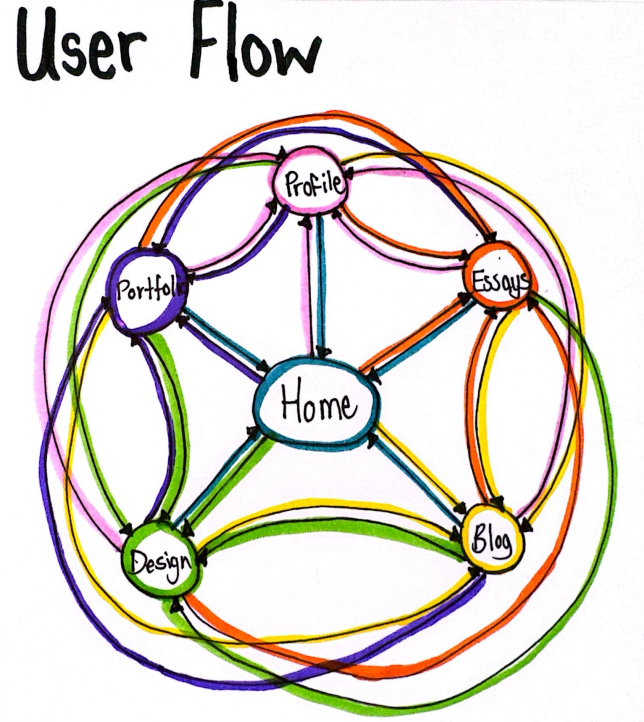 User Flow
Profile
Portfoli
Essays
Home
Design
Blog